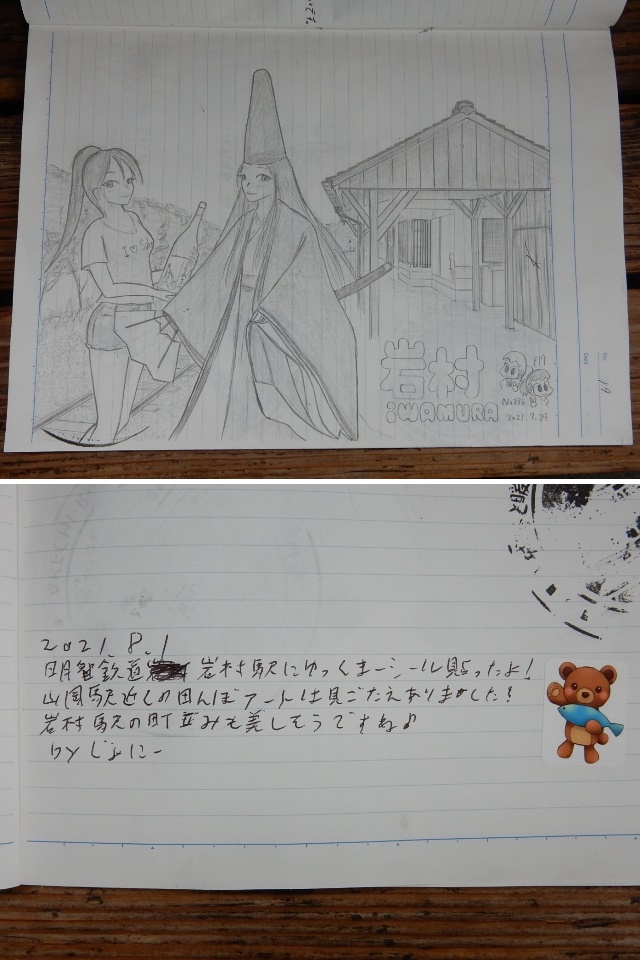 I ♡ Sa
岩村
iWAMURA
2021.7.24
No.
Date
19
2021.8.1
明智鉄道 岩村駅にゆっくまーシール貼ったよ!
山岡駅近くの田んぼアートは見ごたえありました!
岩村駅の町並みも美しそうですね♪
by じょにー